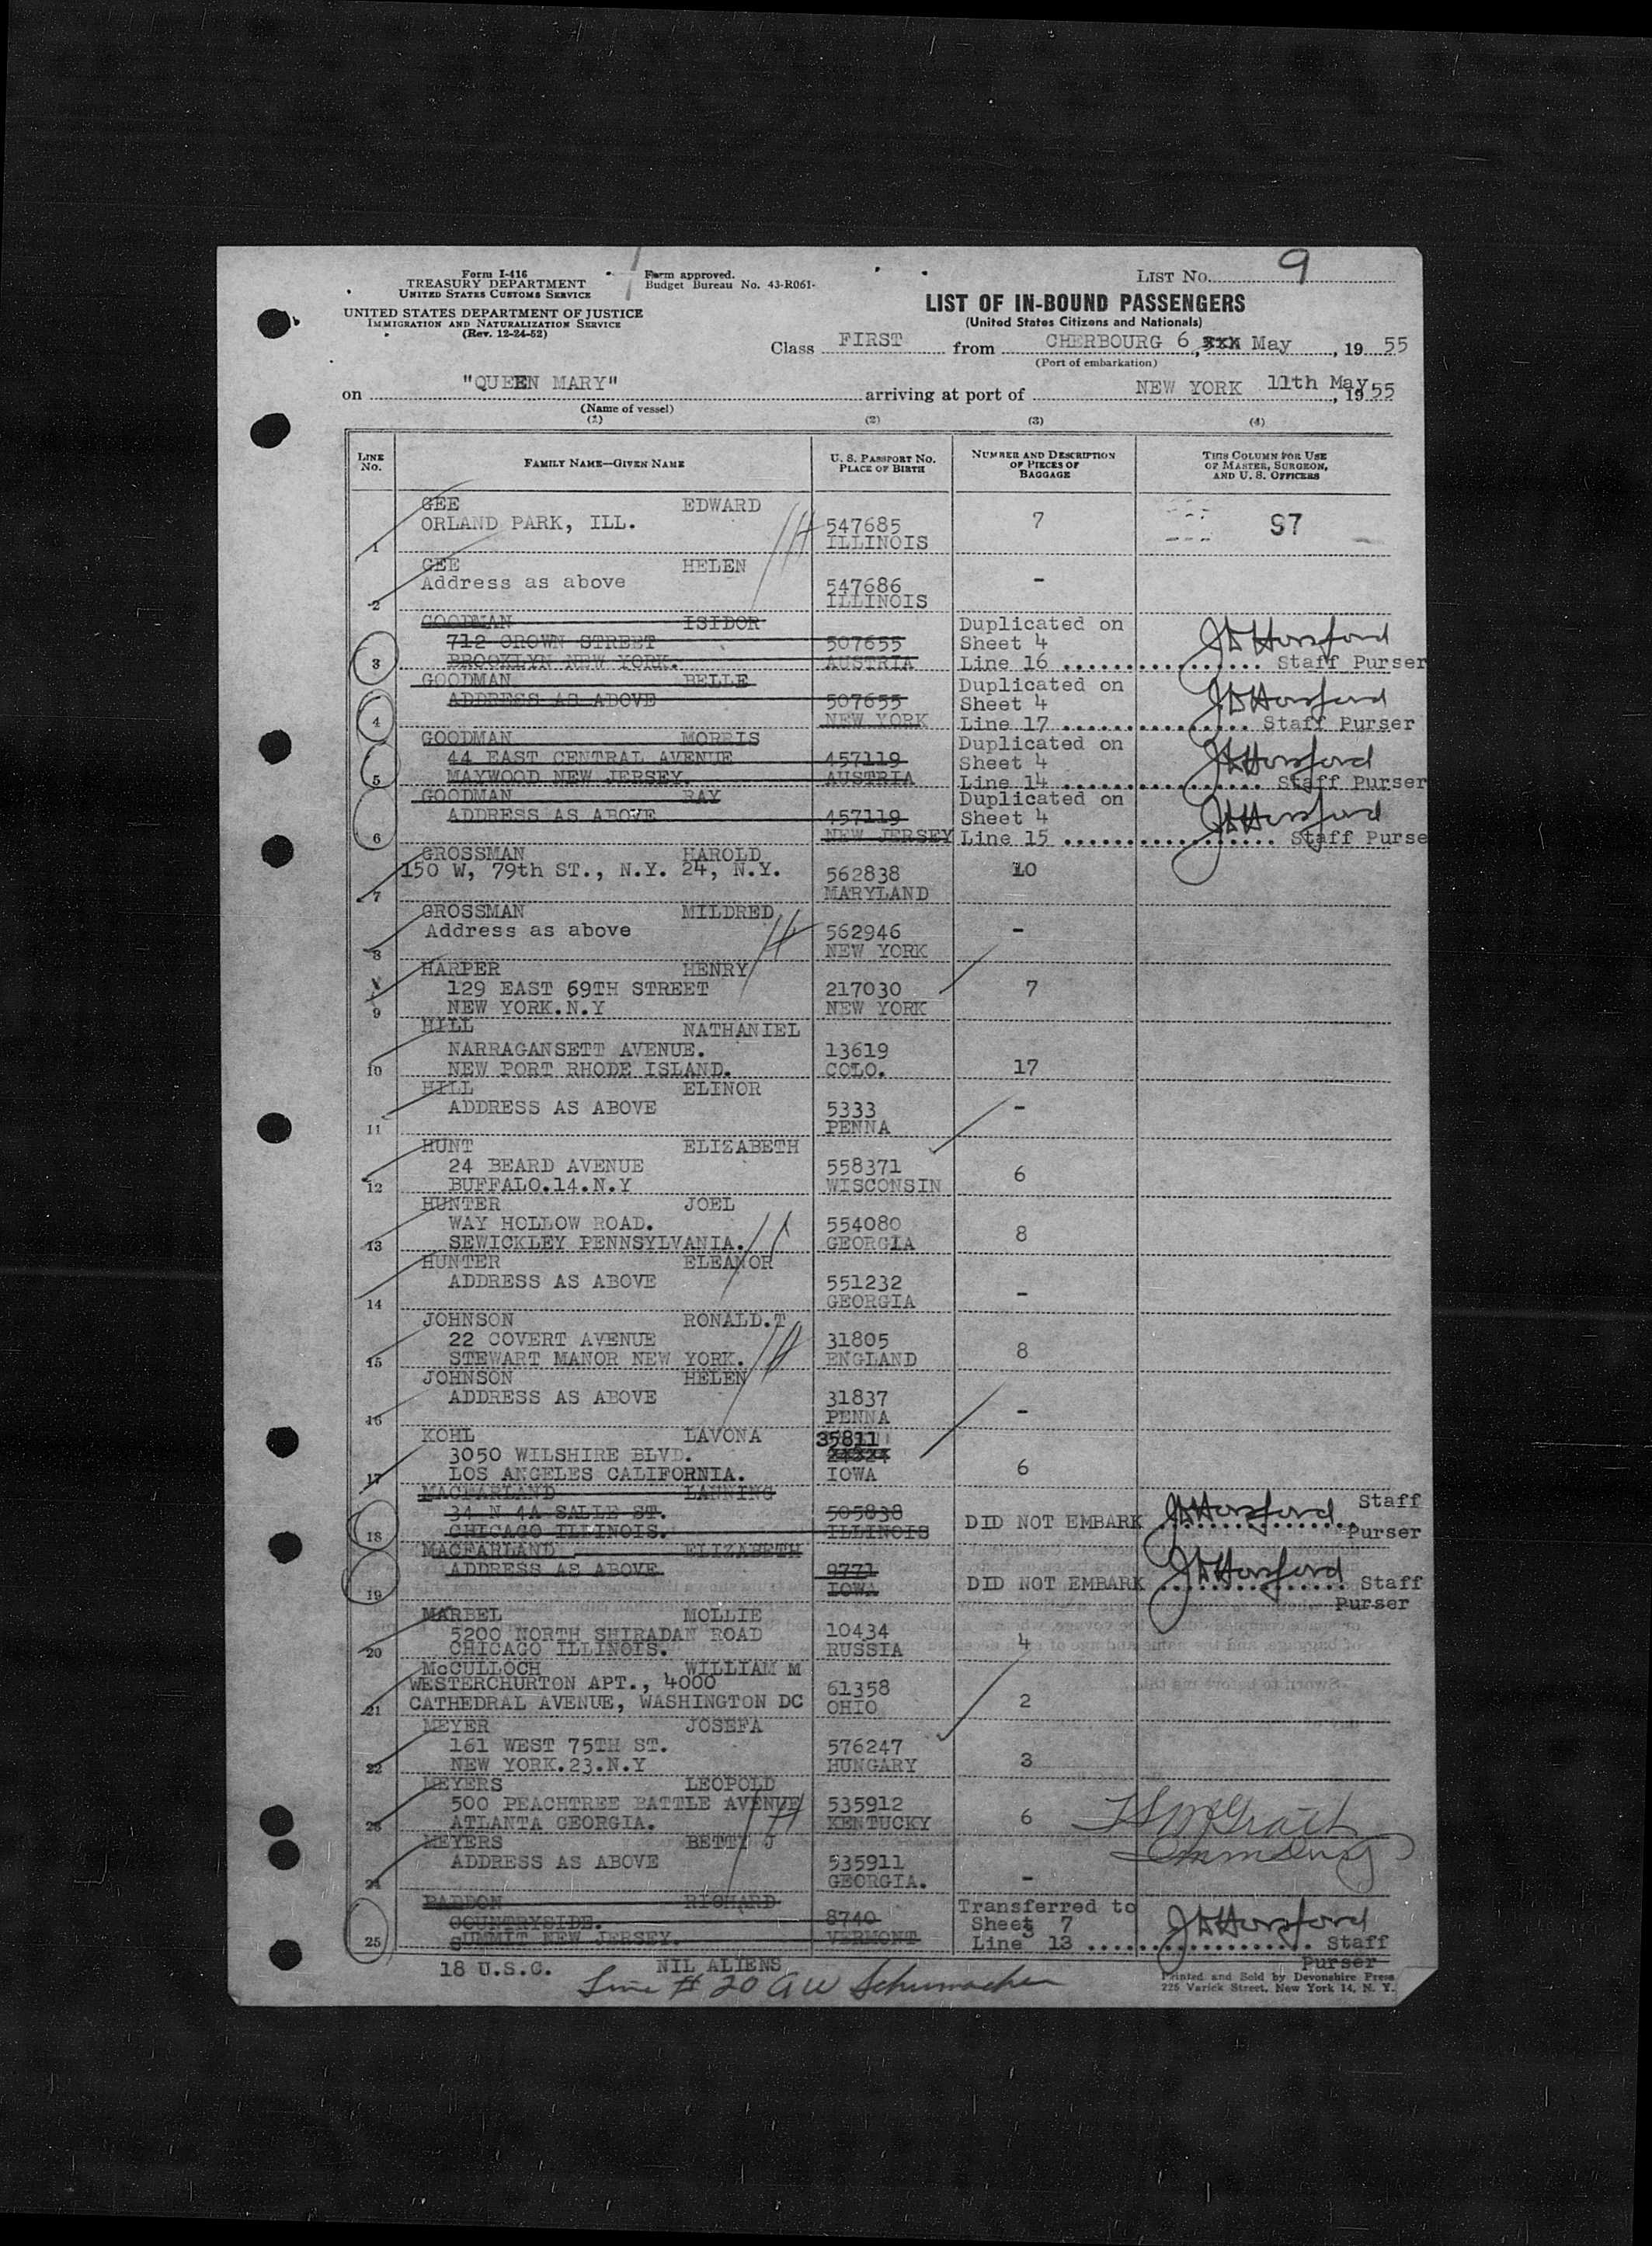 Form I-416
TREASURY DEPARTMENT
UNITED STATES CUSTOMS SERVICE
UNITED STATES DEPARTMENT OF JUSTICE
IMMIGRATION AND NATURALIZATION SERVICE
(Rev. 12-24-52)
Form approved.
Budget Bureau No. 43-R061-
LIST NO. 9
LIST OF IN-BOUND PASSENGERS
(United States Citizens and Nationals)
Class FIRST from CHERBOURG 6, xxx May, 19 55
(Port of embarkation)
on "QUEEN MARY" arriving at port of NEW YORK 11th May, 19 55
(Name of vessel)
(1) (2) (3) (4)
LINE NO. FAMILY NAME—GIVEN NAME U. S. PASSPORT NO. PLACE OF BIRTH NUMBER AND DESCRIPTION OF PIECES OF BAGGAGE THIS COLUMN FOR USE OF MASTER, SURGEON, AND U. S. OFFICERS
GEE EDWARD
ORLAND PARK, ILL. 547685 7 S7
1 ILLINOIS
GEE HELEN
Address as above 547686 -
2 ILLINOIS
GOODMAN ISIDOR Duplicated on
712 CROWN STREET 507655 Sheet 4 J D Horsford
3 BROOKLYN NEW YORK. AUSTRIA Line 16 Staff Purser
GOODMAN BELLE Duplicated on
ADDRESS AS ABOVE 507655 Sheet 4 J D Horsford
4 NEW YORK Line 17 Staff Purser
GOODMAN MORRIS Duplicated on
44 EAST CENTRAL AVENUE 457119 Sheet 4 J D Horsford
5 MAYWOOD NEW JERSEY. AUSTRIA Line 14 Staff Purser
GOODMAN RAY Duplicated on
ADDRESS AS ABOVE 457119 Sheet 4 J D Horsford
6 NEW JERSEY Line 15 Staff Purse
GROSSMAN HAROLD
150 W, 79th ST., N.Y. 24, N.Y. 562838 10
7 MARYLAND
GROSSMAN MILDRED
Address as above 562946 -
8 NEW YORK
HARPER HENRY
129 EAST 69TH STREET 217030 7
9 NEW YORK.N.Y NEW YORK
HILL NATHANIEL
NARRAGANSETT AVENUE. 13619
10 NEW PORT RHODE ISLAND. COLO. 17
HILL ELINOR
ADDRESS AS ABOVE 5333 -
11 PENNA
HUNT ELIZABETH
24 BEARD AVENUE 558371
12 BUFFALO.14.N.Y WISCONSIN 6
HUNTER JOEL
WAY HOLLOW ROAD. 554080
13 SEWICKLEY PENNSYLVANIA. GEORGIA 8
HUNTER ELEANOR
ADDRESS AS ABOVE 551232 -
14 GEORGIA
JOHNSON RONALD.T
22 COVERT AVENUE 31805
15 STEWART MANOR NEW YORK. ENGLAND 8
JOHNSON HELEN
ADDRESS AS ABOVE 31837 -
16 PENNA
KOHL LAVONA 35811
3050 WILSHIRE BLVD.
17 LOS ANGELES CALIFORNIA. IOWA 6
MACFARLAND LANNING
34 N 4A SALLE ST. 505838 DID NOT EMBARK J D Horsford Staff
18 CHICAGO ILLINOIS. ILLINOIS Purser
MACFARLAND ELIZABETH
ADDRESS AS ABOVE 9771 DID NOT EMBARK J D Horsford Staff
19 IOWA Purser
MARBEL MOLLIE
5200 NORTH SHIRADAN ROAD 10434 4
20 CHICAGO ILLINOIS. RUSSIA
McCULLOCH WILLIAM M
WESTERCHURTON APT., 4000 61358
21 CATHEDRAL AVENUE, WASHINGTON DC OHIO 2
MEYER JOSEFA
161 WEST 75TH ST. 576247
22 NEW YORK.23.N.Y HUNGARY 3
MEYERS LEOPOLD
500 PEACHTREE BATTLE AVENUE 535912
23 ATLANTA GEORGIA. KENTUCKY 6
MEYERS BETTY J
ADDRESS AS ABOVE 535911
24 GEORGIA. -
PARDON RICHARD Transferred to
COUNTRYSIDE. 8740 Sheet 7 J D Horsford
25 SUMMIT NEW JERSEY. VERMONT Line 13 Staff
Purser
18 U.S.C. NIL ALIENS
Line # 20 G W Schumacher
Printed and Sold by Devonshire Press
225 Varick Street, New York 14, N. Y.